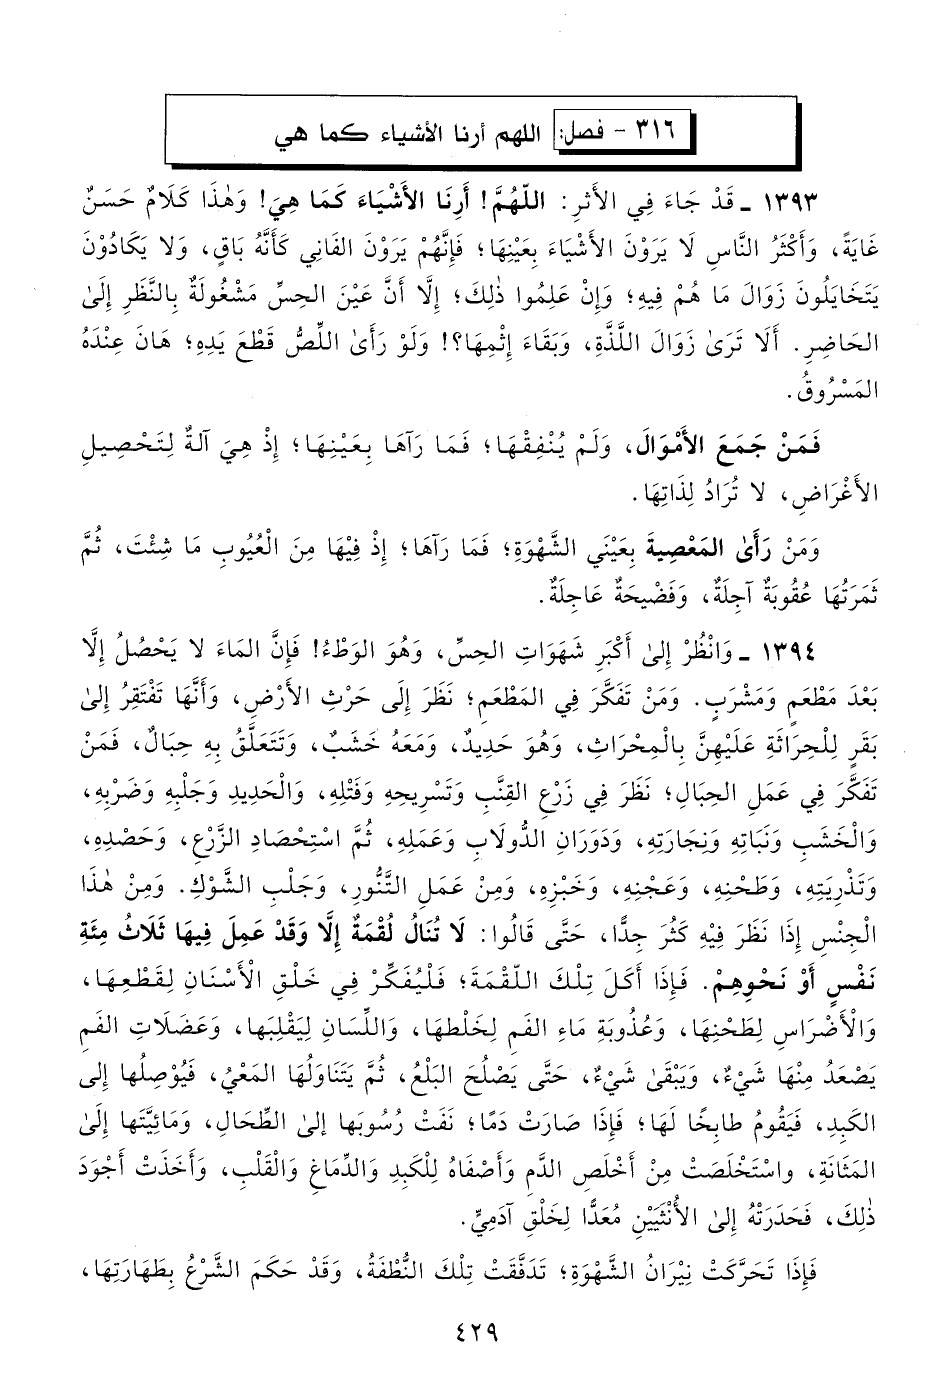 ٣١٦ - فصل: اللهم أرنا الأشياء كما هي
١٣٩٣ ـ قَدْ جَاءَ فِي الأَثَرِ: اللَّهُمَّ! أَرِنَا الأَشْيَاءَ كَمَا هِيَ! وَهٰذَا كَلَامٌ حَسَنٌ
غَايَةً، وَأَكْثَرُ النَّاسِ لَا يَرَوْنَ الأَشْيَاءَ بِعَيْنِهَا؛ فَإِنَّهُمْ يَرَوْنَ الفَانِي كَأَنَّهُ بَاقٍ، وَلا يَكَادُوْنَ
يَتَخَايَلُونَ زَوَالَ مَا هُمْ فِيهِ؛ وَإِنْ عَلِمُوا ذٰلِكَ؛ إِلَّا أَنَّ عَيْنَ الحِسِّ مَشْغُولَةٌ بِالنَّظَرِ إِلَىٰ
الحَاضِرِ. أَلَا تَرَىٰ زَوَالَ اللَّذَّةِ، وَبَقَاءَ إِثْمِهَا؟! وَلَوْ رَأَىٰ اللِّصُّ قَطْعَ يَدِهِ؛ هَانَ عِنْدَهُ
المَسْرُوقُ.
فَمَنْ جَمَعَ الأَمْوَالَ، وَلَمْ يُنْفِقْهَا؛ فَمَا رَآهَا بِعَيْنِهَا؛ إِذْ هِيَ آلَةٌ لِتَحْصِيلِ
الأَغْرَاضِ، لَا تُرَادُ لِذَاتِهَا.
وَمَنْ رَأَىٰ المَعْصِيةَ بِعَيْنَيِ الشَّهْوَةِ؛ فَمَا رَآهَا؛ إِذْ فِيْهَا مِنَ الْعُيُوبِ مَا شِئْتَ، ثُمَّ
ثَمَرَتُهَا عُقُوبَةٌ آجِلَةٌ، وَفَضْيحَةٌ عَاجِلَةٌ.
١٣٩٤ ـ وَانْظُرْ إِلىٰ أَكْبَرِ شَهَوَاتِ الحِسِّ، وَهُوَ الوَطْءُ! فَإِنَّ المَاءَ لا يَحْصُلُ إِلَّا
بَعْدَ مَطْعَمٍ وَمَشْرَبٍ. وَمَنْ تَفَكَّرَ فِي المَطْعَمِ؛ نَظَرَ إِلَى حَرْثِ الأَرْضِ، وَأَنَّهَا تَفْتَقِرُ إِلىٰ
بَقَرٍ لِلْحِرَاثَةِ عَلَيْهِنَّ بِالْمِحْرَاثِ، وَهُوَ حَدِيدٌ، وَمَعَهُ خَشَبٌ، وَتَتَعَلَّقُ بِهِ حِبَالٌ، فَمَنْ
تَفَكَّرَ فِي عَمَلِ الحِبَالِ؛ نَظَرَ فِي زَرْعِ القِنَّبِ وَتَسْرِيحِهِ وَفَتْلِهِ، وَالْحَدِيدِ وَجَلْبِهِ وَضَرْبِهِ،
وَالْخَشَبِ وَنَبَاتِهِ وَنِجَارَتِهِ، وَدَوَرَانِ الدُّولَابِ وَعَمَلِهِ، ثُمَّ اسْتِحْصَادِ الزَّرْعِ، وَحَصْدِهِ،
وَتَذْرِيَتِهِ، وَطَحْنِهِ، وَعَجْنِهِ، وَخَبْزِهِ، وَمِنْ عَمَلِ التَّنُّورِ، وَجَلْبِ الشَّوْكِ. وَمِنْ هٰذَا
الْجِنْسِ إِذَا نَظَرَ فِيْهِ كَثُرَ جِدًّا، حَتَّى قَالُوا: لَا تُنَالُ لُقْمَةٌ إِلَّا وَقَدْ عَمِلَ فِيهَا ثَلَاثُ مِئَةِ
نَفْسٍ أَوْ نَحْوِهِمْ. فَإِذَا أَكَلَ تِلْكَ اللّقْمَةَ؛ فَلْيُفَكِّرْ فِي خَلْقِ الْأَسْنَانِ لِقَطْعِهَا،
وَالْأَضْرَاسِ لِطَحْنِهَا، وَعُذُوبَةِ مَاءِ الفَمِ لِخَلْطهَا، وَاللِّسَانِ لِيَقْلِبَها، وَعَضَلَاتِ الفَمِ
يَصْعَدُ مِنْهَا شَيْءٌ، وَيَبْقَىٰ شَيْءٌ، حَتَّى يَصْلُحَ البَلْعُ، ثُمَّ يَتَنَاوَلُهَا المَعْيُ، فَيُوْصِلُها إِلى
الكَبِدِ، فَيَقُومُ طابِخًا لَهَا؛ فَإِذَا صَارَتْ دَمًا؛ نَفَتْ رُسُوبَهَا إلىٰ الطِّحَالِ، وَمَائِيَّتَها إِلَىٰ
المَثَانَةِ، واسْتَخْلَصَتْ مِنْ أَخْلَصِ الدَّمِ وَأَصْفَاهُ لِلْكَبِدِ وَالدِّمَاغِ وَالْقَلْبِ، وَأَخَذَتْ أَجْوَدَ
ذٰلِكَ، فَحَدَرَتْهُ إِلىٰ الأُنْثَيَيْنِ مُعَدًّا لِخَلْقِ آدَمِيٍّ.
فَإِذَا تَحَرَّكَتْ نِيْرَانُ الشَّهْوَةِ؛ تَدَفَّقَتْ تِلْكَ النُّطْفَةُ، وَقَدْ حَكَمَ الشَّرْعُ بِطَهَارَتِهَا،
٤٢٩